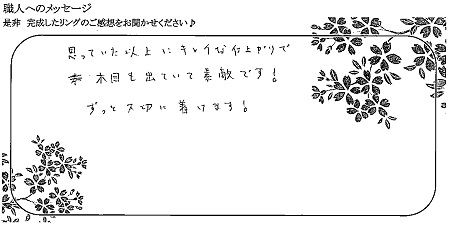 職人へのメッセージ
是非 完成したリングのご感想をお聞かせください♪
思っていた以上にキレイな仕上がりで
木目も出ていて素敵です!
ずっと大切に着けます!